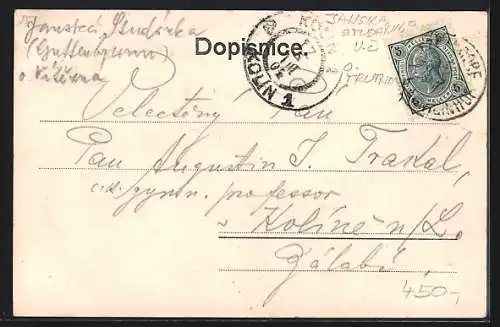 Janská Studánka
(Guttenbrunn)
Dopisnice.
JANSKÁ
STUDÁNKA
U.Č.
O.
TRUTNOV
KOLÍN
1
Velectěný Pan
Pan Augustin J. Trakal,
c.k. gymn. professor
v Kolíně n/L.
Zálabí
450,-